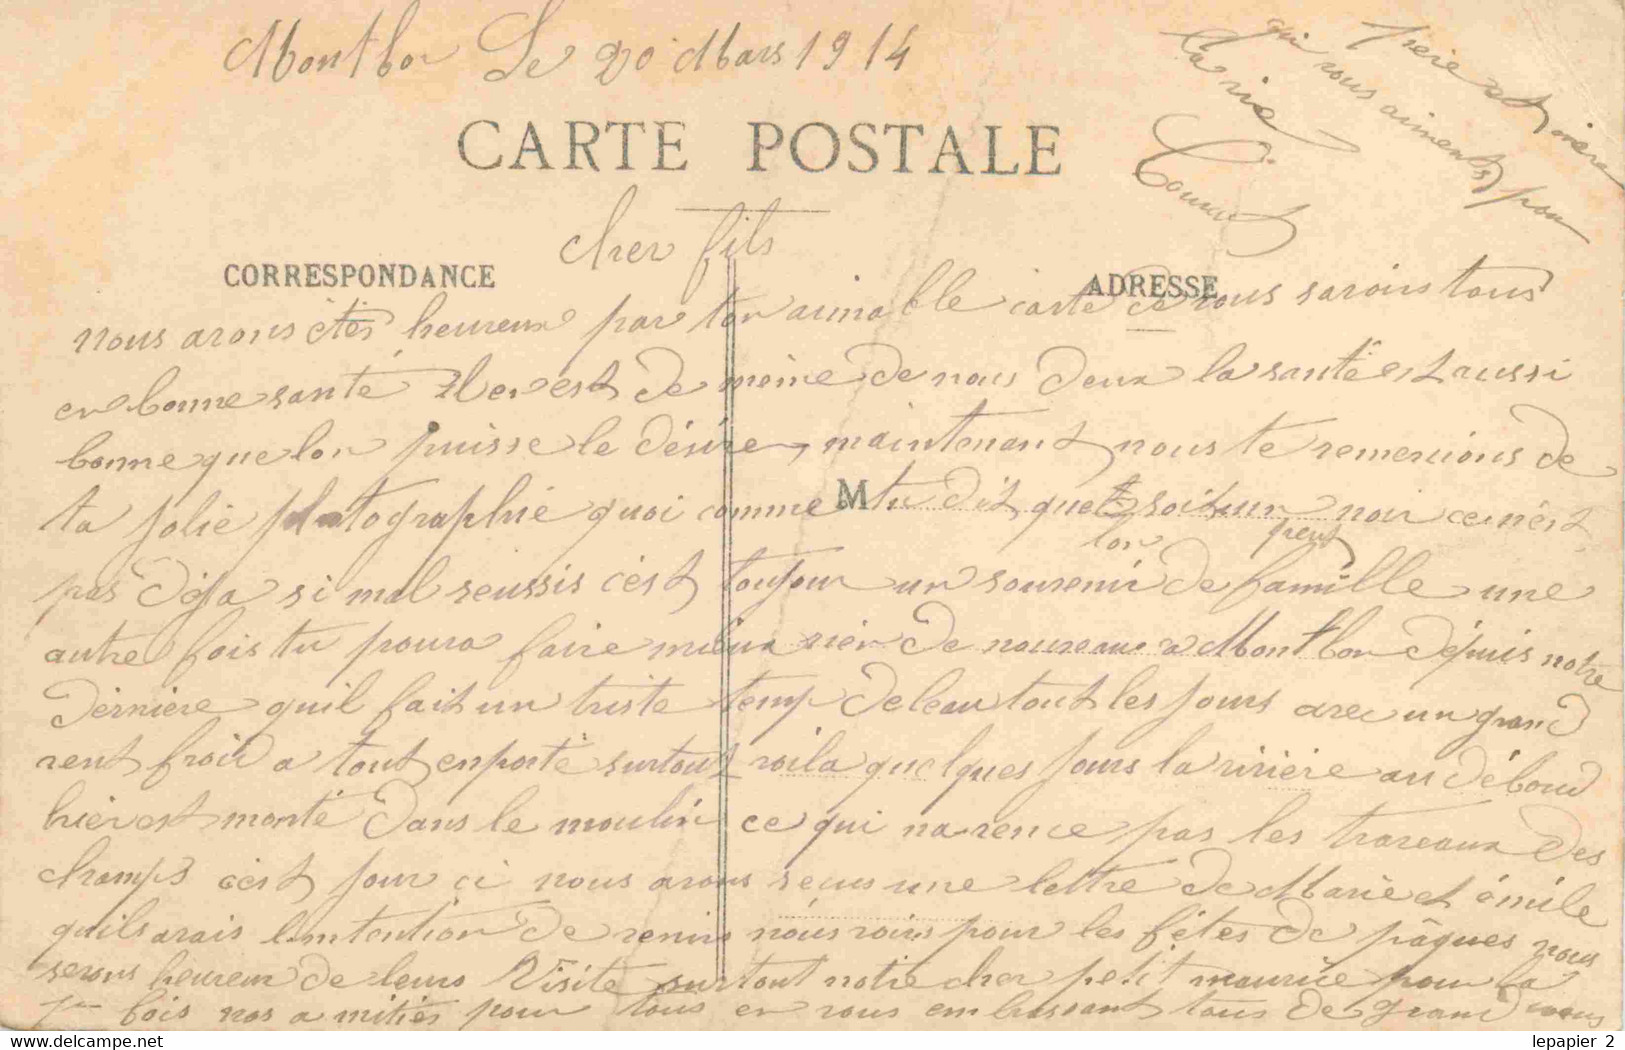 Montbor Le 20 Mars 1914
CARTE POSTALE
cher fils
CORRESPONDANCE
ADRESSE
nous avons étés heureux par ton aimable carte de vous savoir tous
en bonne santé Il en est de même de nous deux la santé est aussi
bonne que lon puisse le désirer, maintenant nous te remercions de
ta jolie photographie quoi comme tu dit quel soit un peut noir ce nést
M
pas déja si mal reussis cést toujour un souvenir de famille une
autre fois tu poura faire mieux rien de nouveau a Montbor dépuis notre
dérniere quil fait un triste temp de leau tout les jours avec un grand
vent froid a tout enporté surtout voila quelques jours la riviére au débord
hier est monté dans le moulin ce qui navence pas les traveaux des
champs cést jour ci nous avons reçus une lettre de Marie et émile
quils avais lintention de venire nous voir pour les fétes de pâques nous
serons heureux de leurs Visite surtout notre cher petit maurice pour la
1re fois nos amitiés pour tous en vous embrassant tous de grand
frere et mère
qui vous aiments pour
la vie